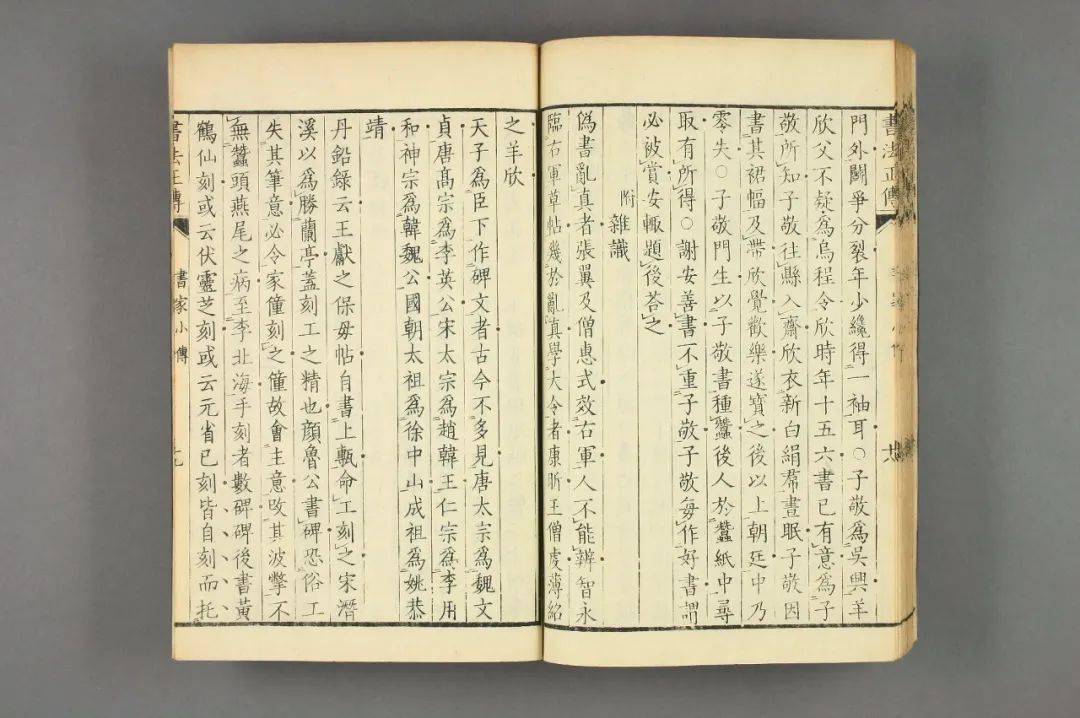 書法正傳
門外鬬爭分裂年少纔得一袖耳○子敬爲吳興羊
欣父不疑爲烏程令欣時年十五六書已有意爲子
敬所知子敬往縣入齋欣衣新白絹帬晝眠子敬因
書其裙幅及帶欣覺歡樂遂寶之後以上朝廷中乃
零失○子敬門生以子敬書種蠶後人於蠶紙中尋
取有所得○謝安善書不重子敬子敬每作好書謂
必被賞安輙題後荅之
附雜識
僞書亂眞者張翼及僧惠式效右軍人不能辨智永
臨右軍草帖幾於亂眞學大令者康昕王僧虔薄紹
之羊欣
天子爲臣下作碑文者古今不多見唐太宗爲魏文
貞唐髙宗爲李英公宋太宗爲趙韓王仁宗爲李用
和神宗爲韓魏公國朝太祖爲徐中山成祖爲姚恭
靖
丹鉛錄云王獻之保母帖自書上甎命工刻之宋潛
溪以爲勝蘭亭蓋刻工之精也顔魯公書碑恐俗工
失其筆意必令家僮刻之僮故會主意改其波撆不
無蠶頭燕尾之病至李北海手刻者數碑碑後書黃
鶴仙刻或云伏靈芝刻或云元省已刻皆自刻而托
書法正傳
書家小傳